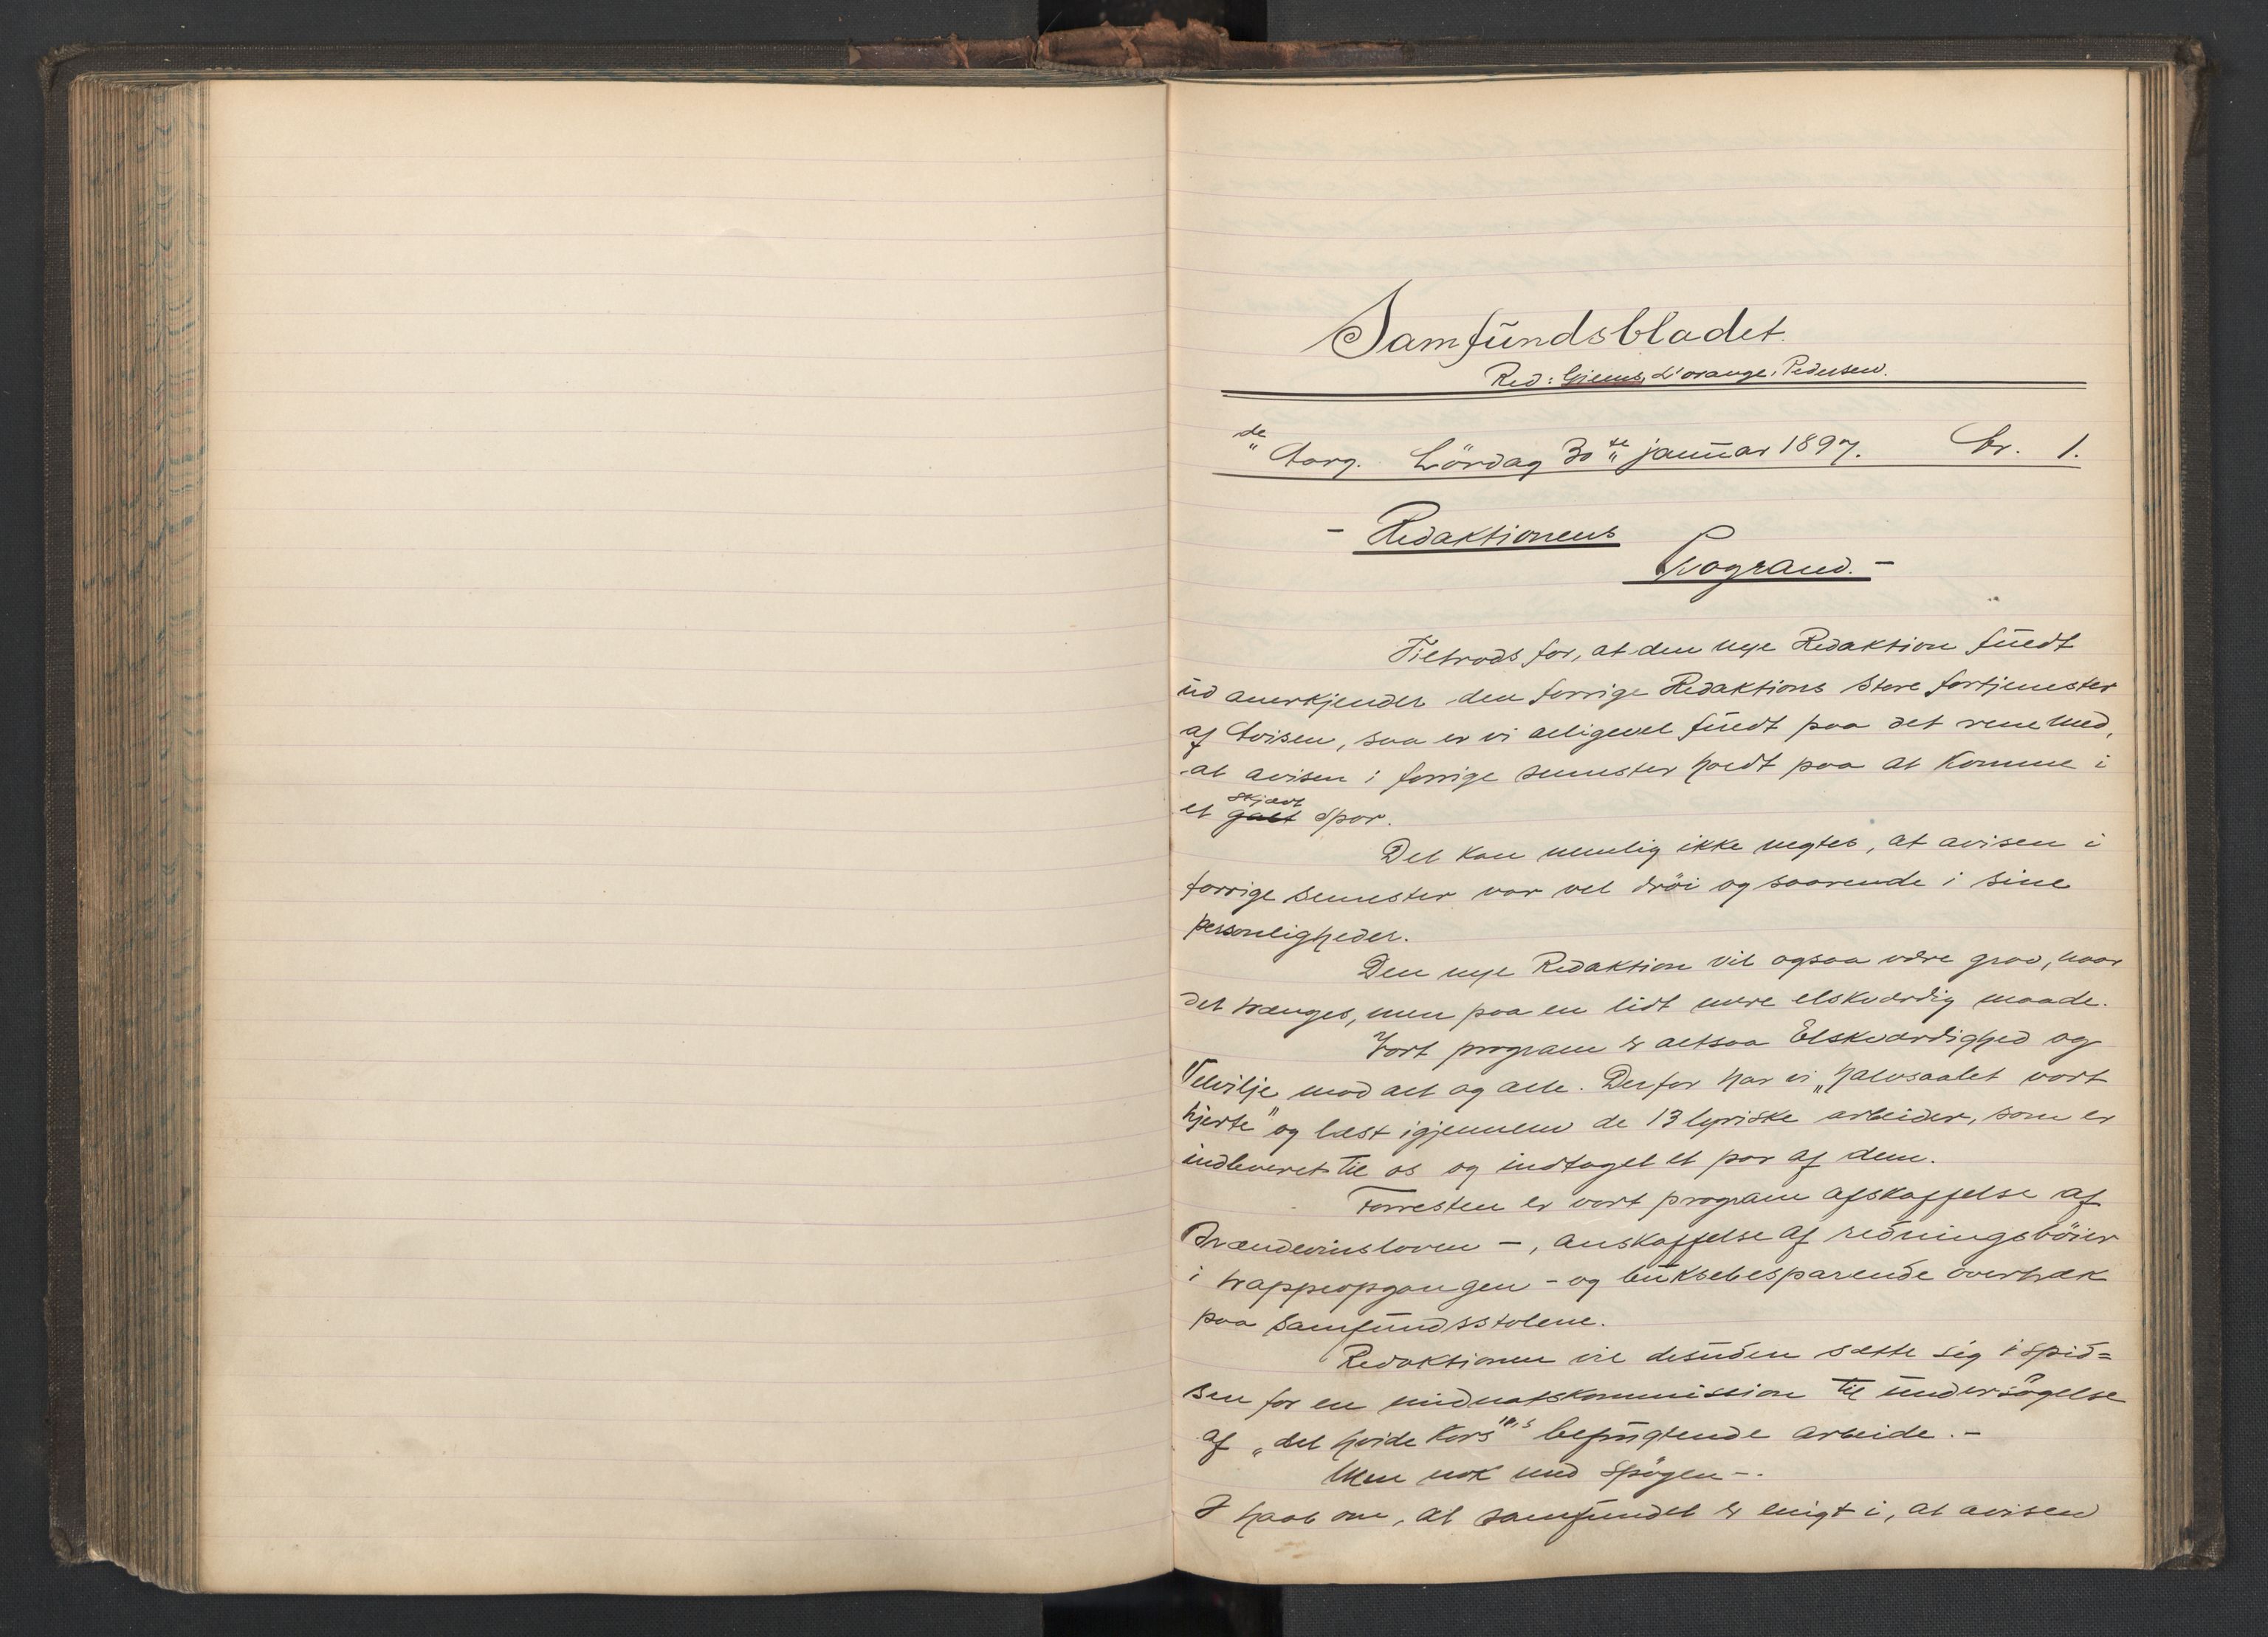 Samfundsbladet.
Red: Giems, L'orange, Pedersen.
de Aarg. Lördag 30te januar 1897. Nr. 1.
- Redaktionens
Program. -
Tiltrods for, at den nye Redaktion fuldt
ud anerkjender den forrige Redaktions store fortjenester
af Avisen, saa er vi alligevel fuldt paa det rene med,
at avisen i forrige semester holdt paa at komme i
et galt skjævt Spor.
Det kan nemlig ikke negtes, at avisen i
forrige semester var vel dröi og saarende i sine
personligheder.
Den nye Redaktion vil ogsaa være grov, naar
det trænges, men paa en lidt mere elskværdig maade.
Vort program er altsaa Elskværdighed og
Velvilje mod alt og alle. Derfor har vi „halvsaalet vort
hjerte" og læst igjennem de 13 lyriske arbeider, som er
indleveret til os og indtaget et par af dem.
Forresten er vort program afskaffelse af
Brændevinsloven -, anskaffelse af redningsböier
i trappeopgangen - og buksebesparende overtræk
paa samfundsstolene.
Redaktionen vil desuden sætte sig i spid=
sen for en midnatskommission til undersögelse
af „det hvide Kors"'s befrugtende arbeide. -
Men nok med spögen -.
I haab om, at samfundet er enigt i, at avisen